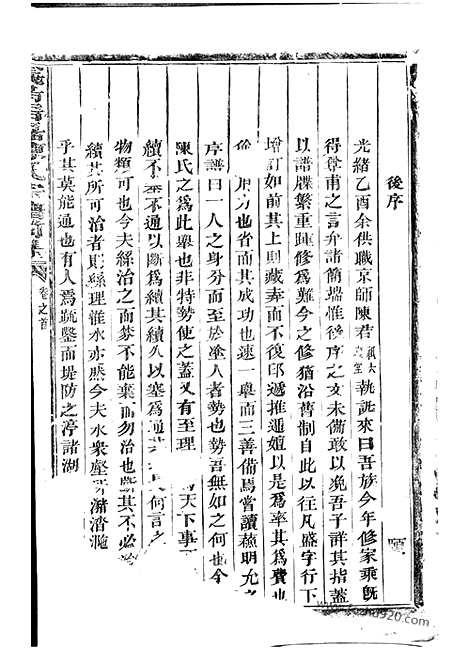 後序
光緒乙酉余供職京師陳君執訊來曰吾族今年修家乘旣
得尊甫之言弁諸簡端惟後序之文未備敢以免吾子詳其指蓋
以譜牒繁重踵修為難今之修猶沿舊制自此以往凡盛字行下
增訂如前其上則藏弆而不復印遞推遞嬗以是為率其為費也
用力也省而其成功也速一舉而三善備焉嘗讀蘇明允之
序譜曰一人之身分而至於塗人者勢也勢吾無如之何也今
陳氏之為此舉也非特勢使之蓋又有至理 天下事
續不 塞不通以斷為續其續久以塞為通 何言之
物類可也今夫絲治之而棼不能棄而勿治也斷其不必
續其所可治者則絲理惟水亦然今夫水衆壑 潴渚
乎其莫能通也有人焉疏鑿而堤防之渟諸湖
卷之首
www.shuge920.com